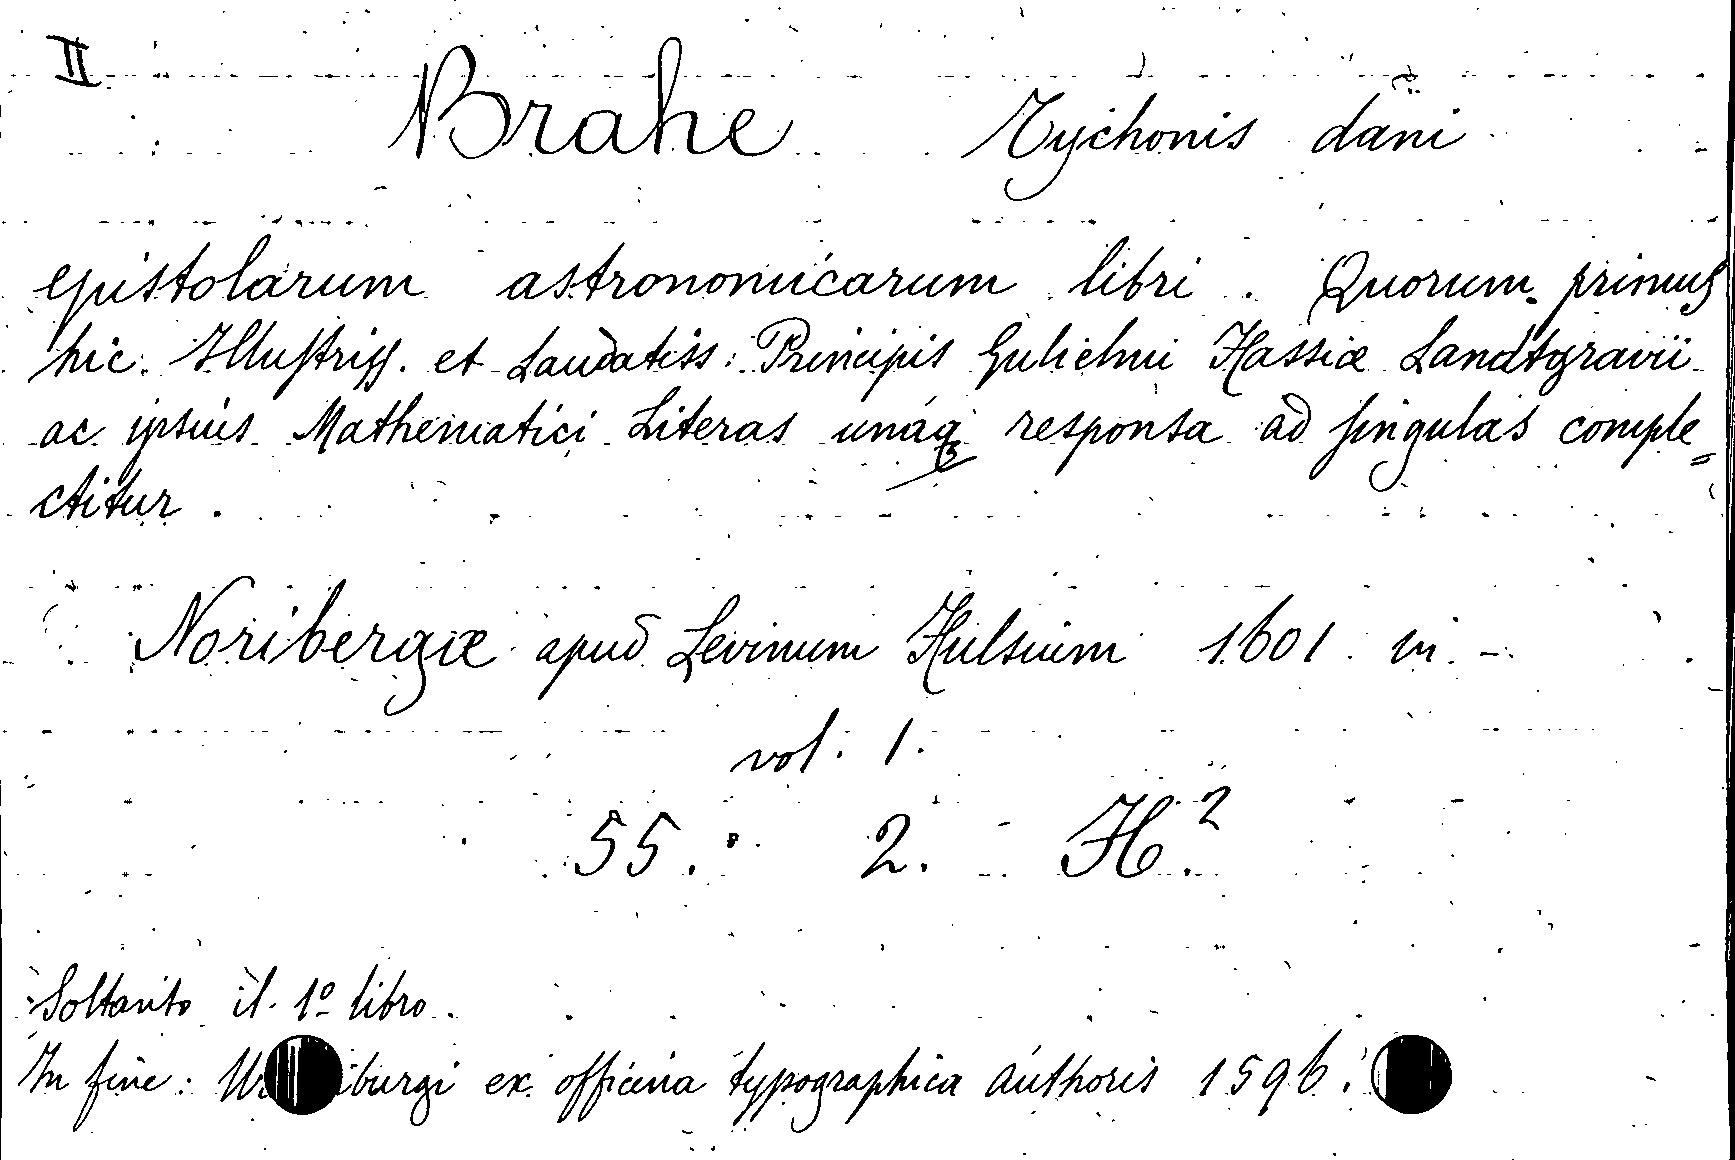 II
Brahe Tychonis dani
epistolarum astronomicarum libri. Quorum primus
hic Illustriss. et Laudatiss: Principis Gulielmi Hassiæ Landtgravii
ac ipsius Mathematici Literas unáq₃ responsa ad singulas comple=
ctitur.
Noribergiæ apud Levinum Hulsium 1601 in -
vol: 1.
55. 2. H.²
Soltanto il 1º libro.
In fine: ex officina typographica authoris 1596.